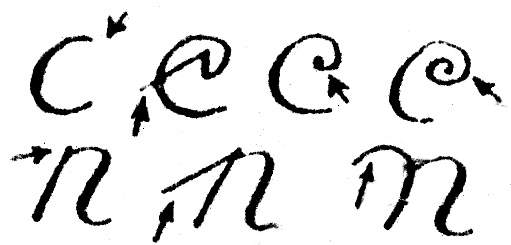 C C C C
n n n